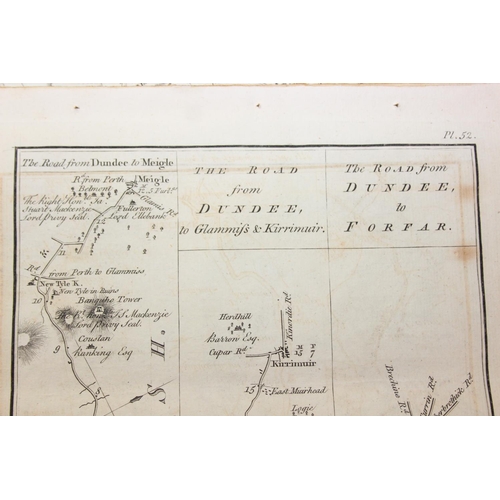 Pl. 52.
The Road from Dundee to Meigle
Rd. from Perth
Meigle
12.5 Furl.
Belmont
The Right Hon. Ja.
Stuart Mackenzie
Lord Privy Seal.
Glamis Rd
Fullerton
Lord Ellebank
12
11
Rd from Perth to Glammiss
New Tyle K.
New Tyle in Ruins
10
Banquhe Tower
The Rt. Hon. J. S. Mackenzie
Lord Privy Seal.
Couslan
Ranking Esq
9
S H.
THE ROAD
from
DUNDEE,
to Glammiss & Kirrimuir.
Herdhill
Barron Esq.
Cupar Rd.
Kinordie Rd
M F
15 7
Kirrimuir
15
East Muirhead
Logie
The ROAD from
DUNDEE,
to
FORFAR.
Brechine Rd